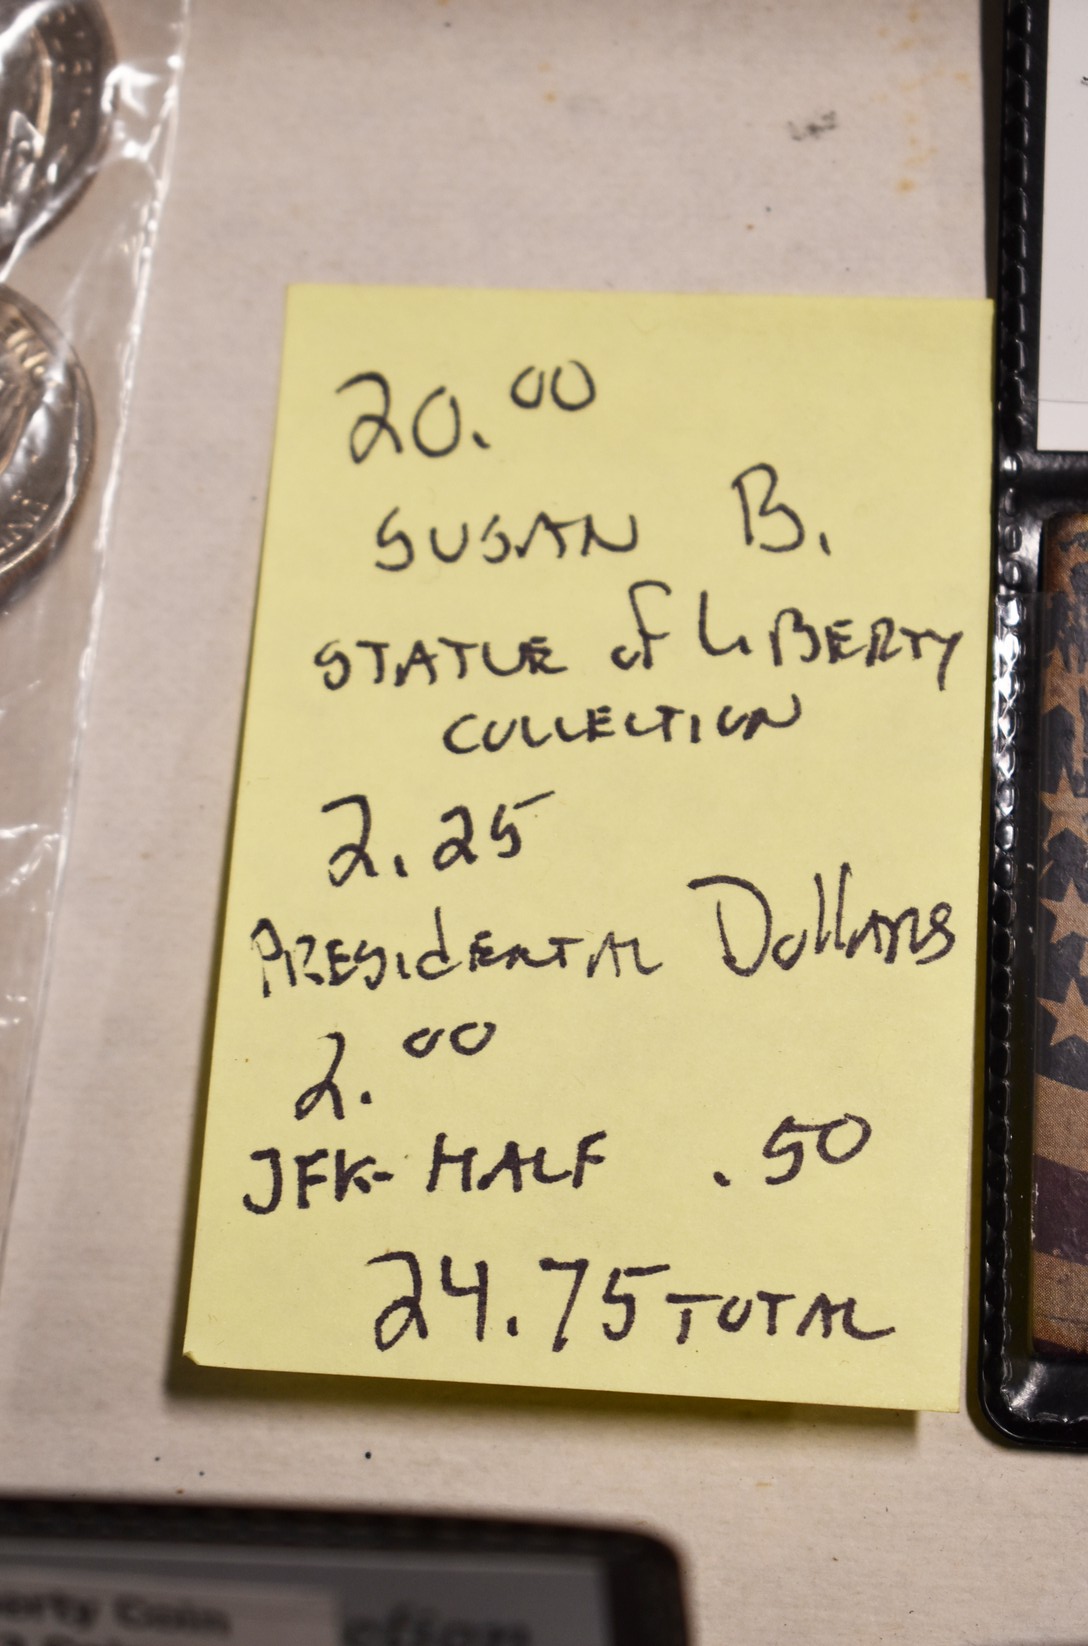 20.00
SUSAN B.
STATUE of LIBERTY
COLLECTION
2.25
PRESIdENTIAL DollARS
2.00
JFK- HALF .50
24.75 TOTAL